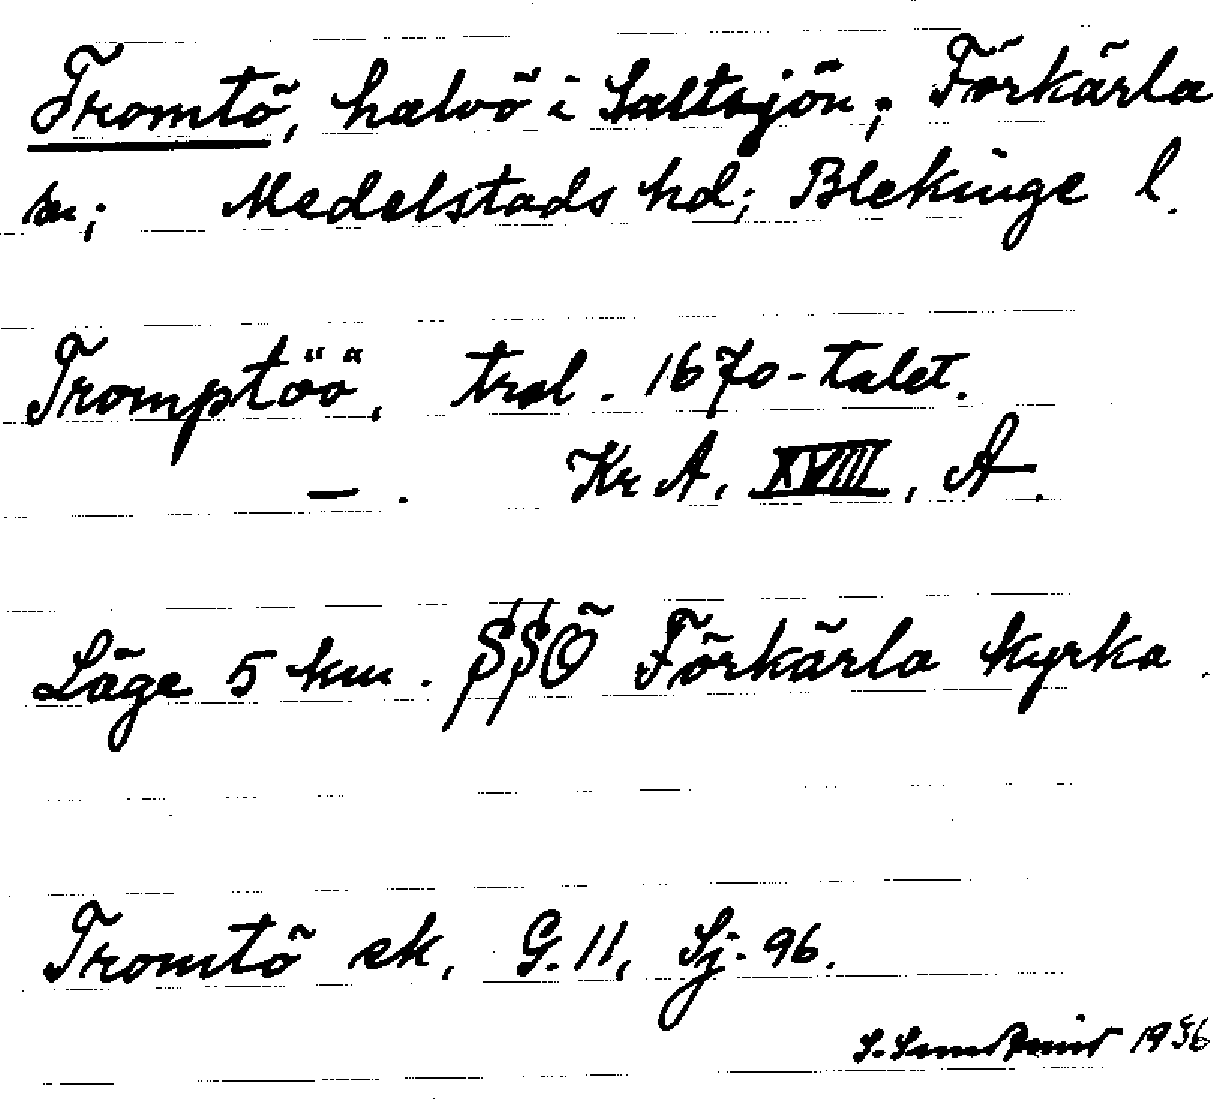 Tromtö, halvö i Saltsjön; Förkärla
sn; Medelstads hd; Blekinge l.
Tromptöö, trol. 1670-talet.
— . Kr A, XVIII, A.
Läge 5 km. SSÖ Förkärla kyrka.
Tromtö ek, G. 11, Sj. 96.
S. 1956